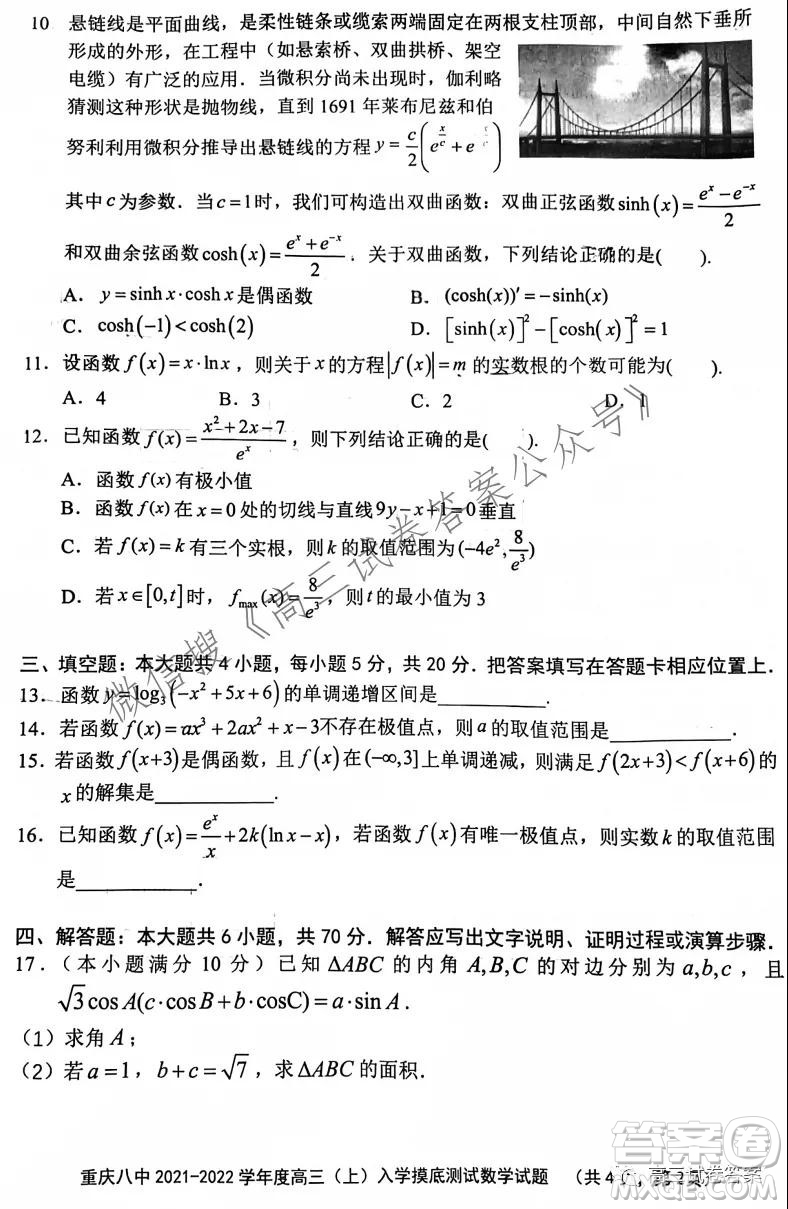 10 悬链线是平面曲线，是柔性链条或缆索两端固定在两根支柱顶部，中间自然下垂所
形成的外形，在工程中（如悬索桥、双曲拱桥、架空
电缆）有广泛的应用．当微积分尚未出现时，伽利略
猜测这种形状是抛物线，直到 1691 年莱布尼兹和伯
努利利用微积分推导出悬链线的方程 y=c/2(e^(x/c)+e
其中 c 为参数．当 c=1时，我们可构造出双曲函数：双曲正弦函数 sinh(x)=(e^x-e^(-x))/2
和双曲余弦函数 cosh(x)=(e^x+e^(-x))/2．关于双曲函数，下列结论正确的是( ).
A．y=sinhx·coshx是偶函数 B．(cosh(x))′=-sinh(x)
C．cosh(-1)<cosh(2) D．[sinh(x)]²-[cosh(x)]²=1
11．设函数 f(x)=x·lnx，则关于 x 的方程|f(x)|=m 的实数根的个数可能为( ).
A．4 B．3 C．2 D．1
12．已知函数 f(x)=(x²+2x-7)/e^x，则下列结论正确的是( ).
A．函数 f(x) 有极小值
B．函数 f(x) 在 x=0 处的切线与直线 9y-x+1=0垂直
C．若 f(x)=k 有三个实根，则 k 的取值范围为(-4e²,8/e³)
D．若 x∈[0,t]时，f_max(x)=8/e³，则 t 的最小值为 3
三、填空题：本大题共 4 小题，每小题 5 分，共 20 分．把答案填写在答题卡相应位置上．
13．函数 y=log₃(-x²+5x+6)的单调递增区间是________．
14．若函数 f(x)=ax³+2ax²+x-3不存在极值点，则 a 的取值范围是________．
15．若函数 f(x+3)是偶函数，且 f(x)在(-∞,3]上单调递减，则满足 f(2x+3)<f(x+6)的
x 的解集是________．
16．已知函数 f(x)=e^x/x+2k(lnx-x)，若函数 f(x) 有唯一极值点，则实数 k 的取值范围
是________．
四、解答题：本大题共 6 小题，共 70 分．解答应写出文字说明、证明过程或演算步骤．
17．（本小题满分 10 分）已知 ΔABC 的内角 A,B,C 的对边分别为 a,b,c，且
√3cosA(c·cosB+b·cosC)=a·sinA．
（1）求角 A；
（2）若 a=1，b+c=√7，求 ΔABC 的面积．
微信搜《高三试卷答案公众号》
重庆八中 2021-2022 学年度高三（上）入学摸底测试数学试题 （共 4
高三试卷答案
答案圈
MXQE.COM